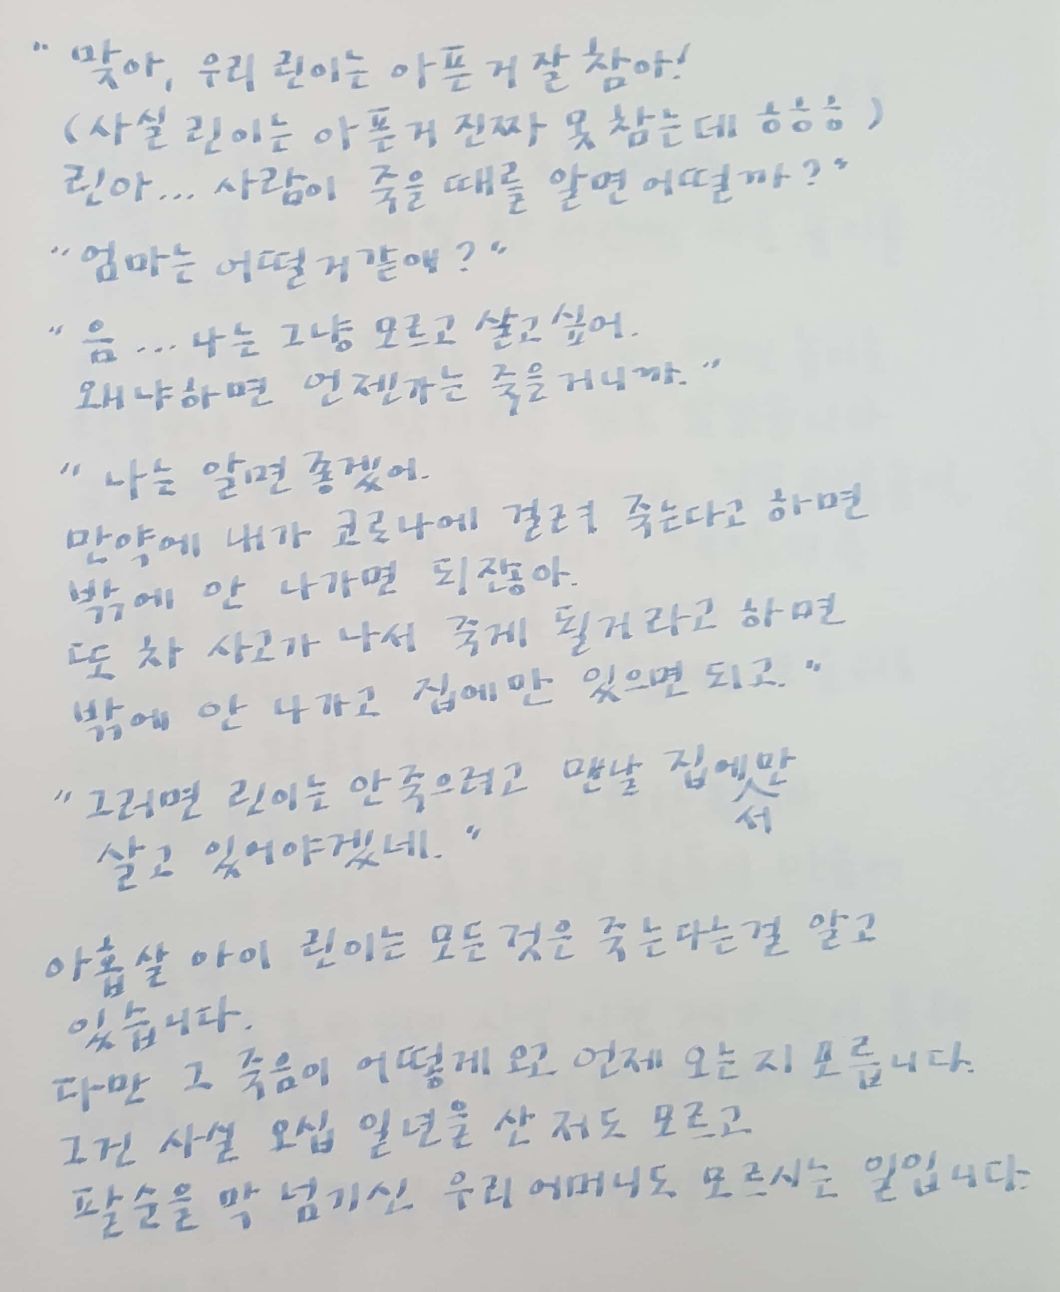 " 맞아, 우리 린이는 아픈 거 잘 참아!
(사실 린이는 아픈거 진짜 못 참는데 ㅎㅎㅎㅎ)
린아... 사람이 죽을 때를 알면 어떨까?"
"엄마는 어떨 거 같애?"
"음... 나는 그냥 모르고 살고 싶어.
왜냐하면 언젠가는 죽을거니까."
"나는 알면 좋겠어.
만약에 내가 코로나에 걸려 죽는다고 하면
밖에 안 나가면 되잖아.
또 차 사고가 나서 죽게 될거라고 하면
밖에 안 나가고 집에만 있으면 되고."
"그러면 린이는 안죽으려고 맨날 집에서만
살고 있어야겠네."
아홉살 아이 린이는 모든 것은 죽는다는걸 알고
있습니다.
다만 그 죽음이 어떻게 오고 언제 오는지 모릅니다.
그건 사실 오십 일년을 산 저도 모르고
팔순을 막 넘기신 우리 어머니도 모르시는 일입니다.